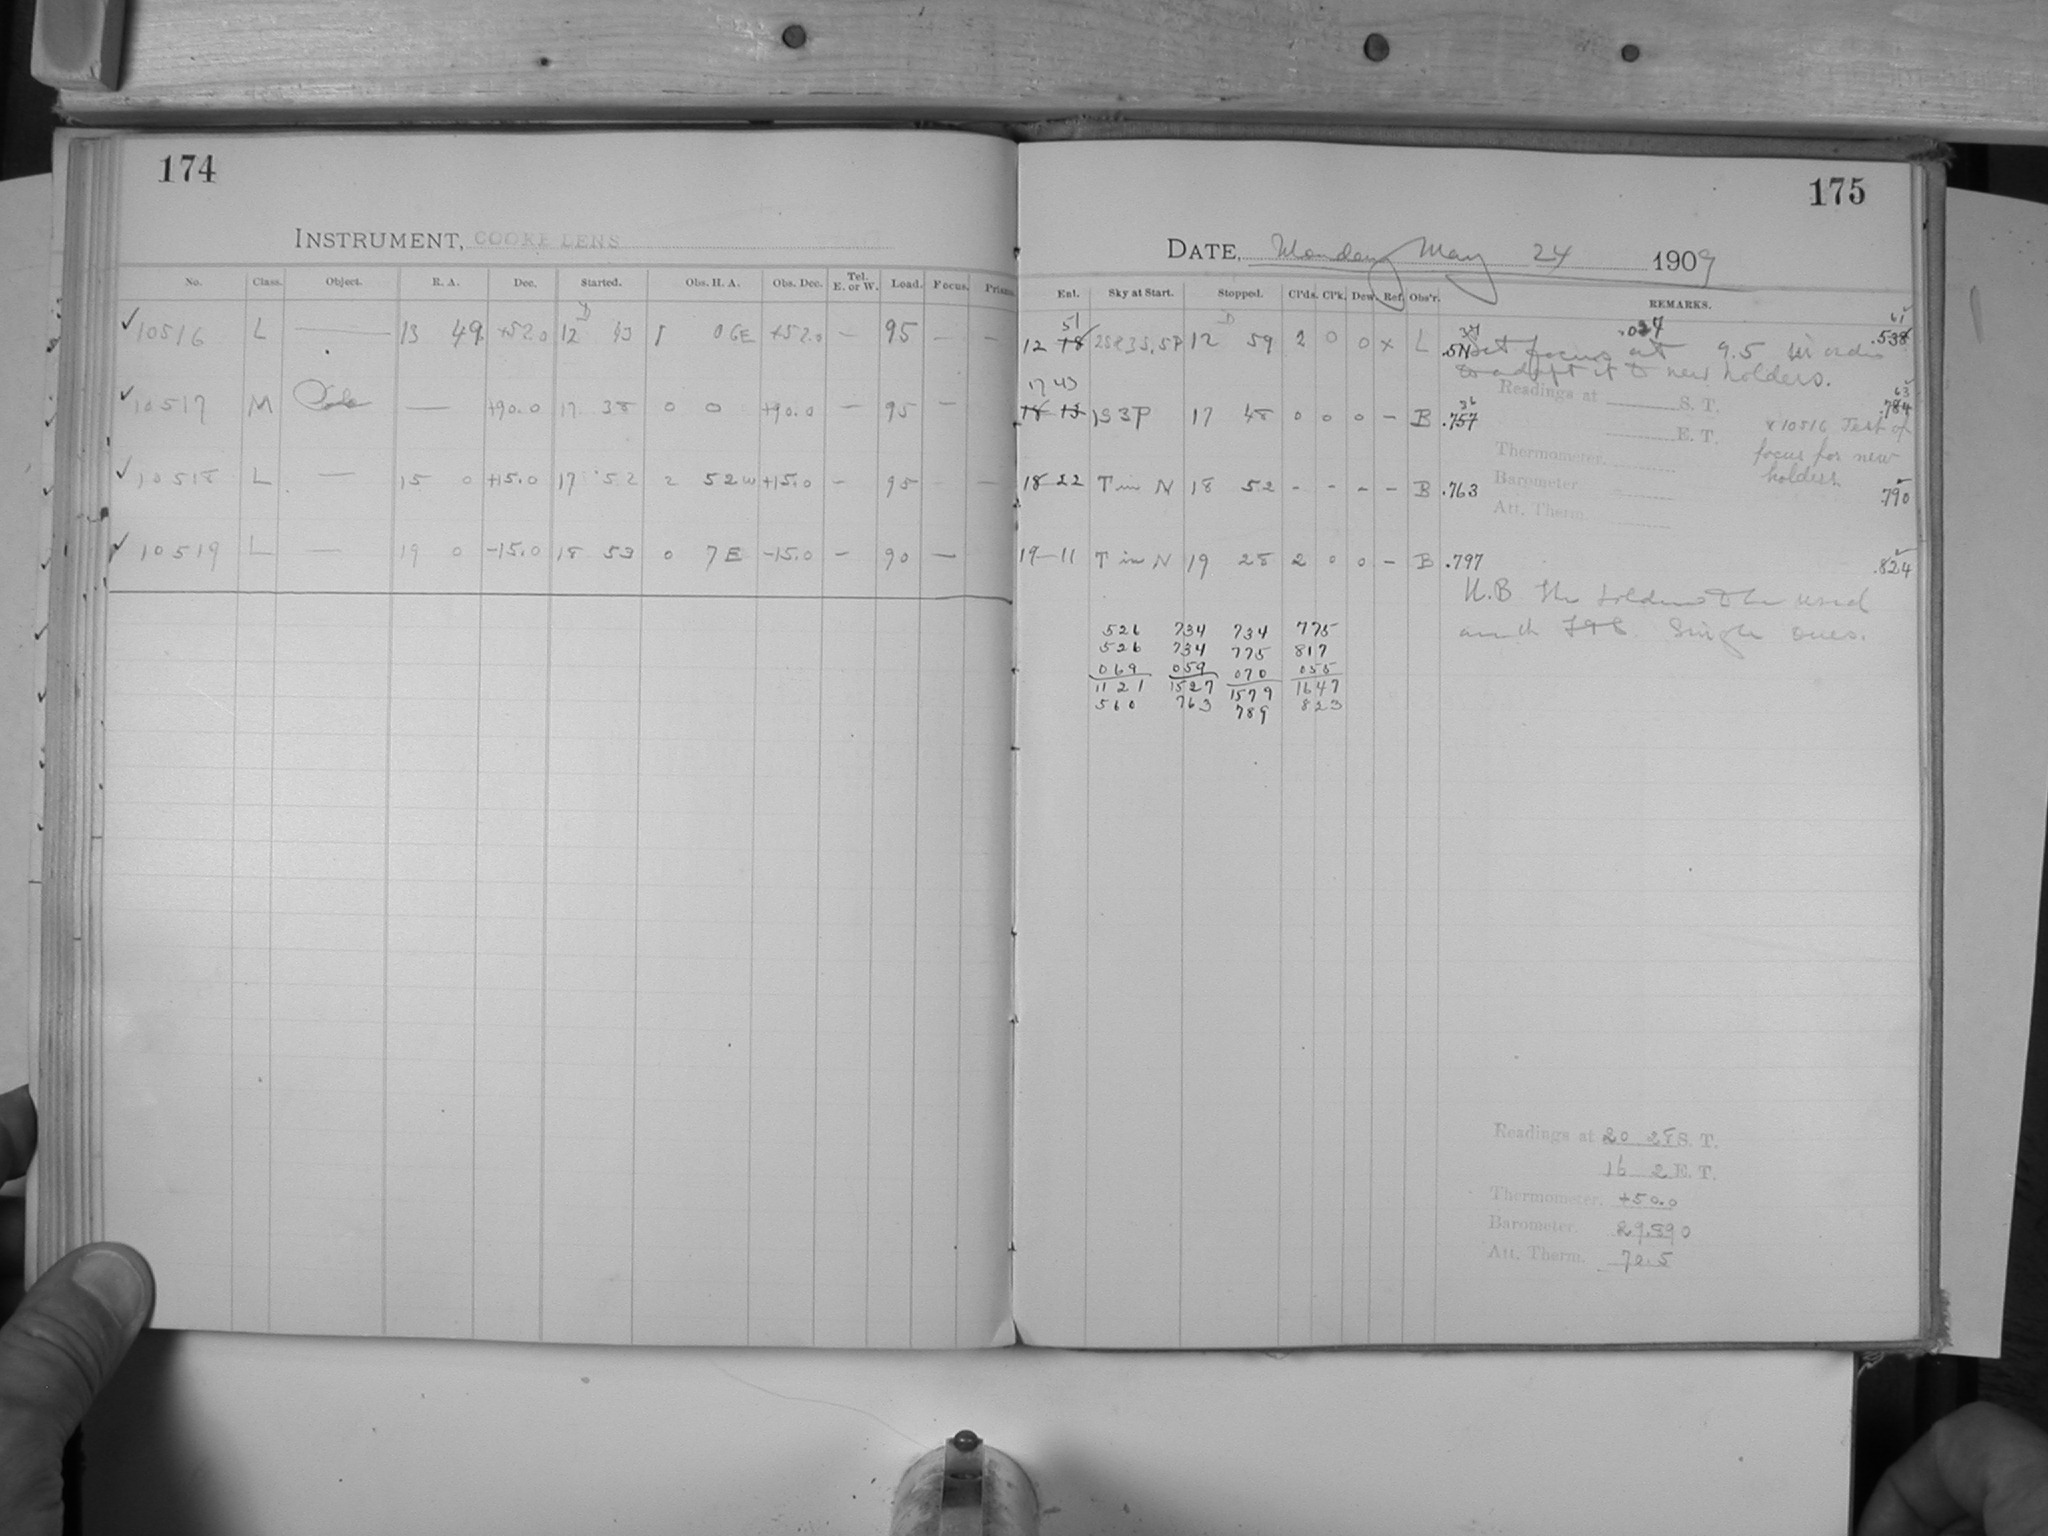 174
INSTRUMENT, COOKE LENS
No. Class. Object. R. A. Dec. Started. Obs. H. A. Obs. Dec. Tel. E. or W. Load. Focus. Prisms.
✓ 10516 L — 13 49 +52.0 12 43 1 06E +52.0 — 95 — —
✓ 10517 M Pole — +90.0 17 38 0 0 +90.0 — 95 —
✓ 10518 L — 15 0 +15.0 17 52 2 52w +15.0 — 95 — —
✓ 10519 L — 19 0 -15.0 18 53 0 7E -15.0 — 90 —
175
DATE, Monday May 24 1909
Ent. Sky at Start. Stopped. Cl'ds. Cl'k. Dew. Ref. Obs'r. REMARKS.
51
12 18 12 59 2 0 0 x L Set focus at 9.5 in order
to adapt it to new holders.
17 43
18 13 1S3P 17 48 0 0 0 — B .757 .784
18 22 T in N 18 52 - - - - B .763 .790
19-11 T in N 19 28 2 0 0 — B .797 .824
Readings at S. T.
E. T.
Thermometer.
Barometer.
Att. Therm.
x 10516 Test of
focus for new
holders
N.B The holders to be used
are the Single ones.
526 734 734 775
526 734 775 817
069 059 070 055
1121 1527 1579 1647
560 763 789 823
Readings at 20 28 S. T.
16 2 E. T.
Thermometer. +50.0
Barometer. 29.890
Att. Therm. 70.5